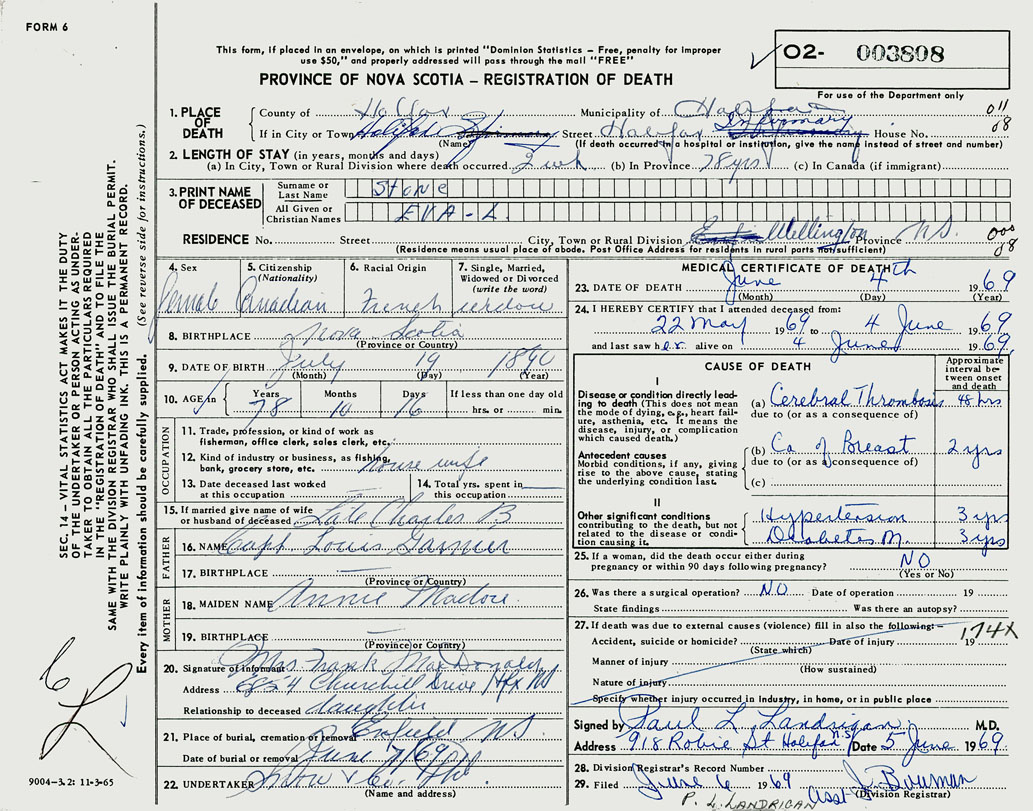 FORM 6
This form, if placed in an envelope, on which is printed "Dominion Statistics – Free, penalty for improper
use $50," and properly addressed will pass through the mail "FREE"
PROVINCE OF NOVA SCOTIA – REGISTRATION OF DEATH
O2- 003808
For use of the Department only
1. PLACE OF DEATH
County of Halifax Municipality of Halifax 011
If in City or Town Halifax Street Halifax Infirmary House No. 08
(Name) (If death occurred in a hospital or institution, give the name instead of street and number)
2. LENGTH OF STAY (in years, months and days)
(a) In City, Town or Rural Division where death occurred 2 wk (b) In Province 78 yrs (c) In Canada (if immigrant)
3. PRINT NAME OF DECEASED
Surname or Last Name Stone
All Given or Christian Names EVA-L
RESIDENCE No. Street City, Town or Rural Division Wellington Province N.S. 000
(Residence means usual place of abode. Post Office Address for residents in rural parts not sufficient) 08
4. Sex Female
5. Citizenship (Nationality) Canadian
6. Racial Origin French
7. Single, Married, Widowed or Divorced (write the word)
8. BIRTHPLACE Nova Scotia
(Province or Country)
9. DATE OF BIRTH July 19 1890
(Month) (Day) (Year)
10. AGE in Years 78 Months 10 Days 16 If less than one day old
hrs. or min.
OCCUPATION
11. Trade, profession, or kind of work as
fisherman, office clerk, sales clerk, etc.
12. Kind of industry or business, as fishing,
bank, grocery store, etc. house wife
13. Date deceased last worked at this occupation
14. Total yrs. spent in this occupation
15. If married give name of wife
or husband of deceased Late Charles B.
FATHER
16. NAME Capt Louis
17. BIRTHPLACE
(Province or Country)
MOTHER
18. MAIDEN NAME Annie
19. BIRTHPLACE
(Province or Country)
20. Signature of informant Mrs Frank MacDonald
Address Churchill Drive Hfx NS
Relationship to deceased daughter
21. Place of burial, cremation or removal Enfield NS
Date of burial or removal June 7/69
22. UNDERTAKER Snow & Co.
(Name and address)
MEDICAL CERTIFICATE OF DEATH
23. DATE OF DEATH June 4th 1969
(Month) (Day) (Year)
24. I HEREBY CERTIFY that I attended deceased from:
22 May 1969 to 4 June 1969
and last saw her alive on 4 June 1969
CAUSE OF DEATH
Approximate interval between onset and death
I
Disease or condition directly leading to death (This does not mean the mode of dying, e.g., heart failure, asthenia, etc. It means the disease, injury, or complication which caused death.)
(a) Cerebral Thrombosis 48 hrs
due to (or as a consequence of)
Antecedent causes
Morbid conditions, if any, giving rise to the above cause, stating the underlying condition last.
(b) Ca of Breast 2 yrs
due to (or as a consequence of)
(c)
II
Other significant conditions
contributing to the death, but not related to the disease or condition causing it.
Hypertension 3 yrs
Diabetes M. 3 yrs
25. If a woman, did the death occur either during
pregnancy or within 90 days following pregnancy? NO
(Yes or No)
26. Was there a surgical operation? NO Date of operation 19
State findings Was there an autopsy?
27. If death was due to external causes (violence) fill in also the following:– 174X
Accident, suicide or homicide? Date of injury 19
(State which)
Manner of injury
(How sustained)
Nature of injury
Specify whether injury occurred in Industry, in home, or in public place
Signed by Paul L Landrigan M.D.
Address 918 Robie St Halifax N.S. Date 5 June 1969
28. Division Registrar's Record Number
29. Filed June 6 1969 Asst J. Bowman
(Division Registrar)
P. L. LANDRIGAN
SEC. 14 – VITAL STATISTICS ACT MAKES IT THE DUTY
OF THE UNDERTAKER OR PERSON ACTING AS UNDER-
TAKER TO OBTAIN ALL THE PARTICULARS REQUIRED
IN THE "REGISTRATION OF DEATH" AND TO FILE THE
SAME WITH THE DIVISION REGISTRAR WHO SHALL ISSUE THE BURIAL PERMIT.
WRITE PLAINLY WITH UNFADING INK. THIS IS A PERMANENT RECORD.
Every item of information should be carefully supplied. (See reverse side for instructions.)
6
9004–3.2: 11-3-65